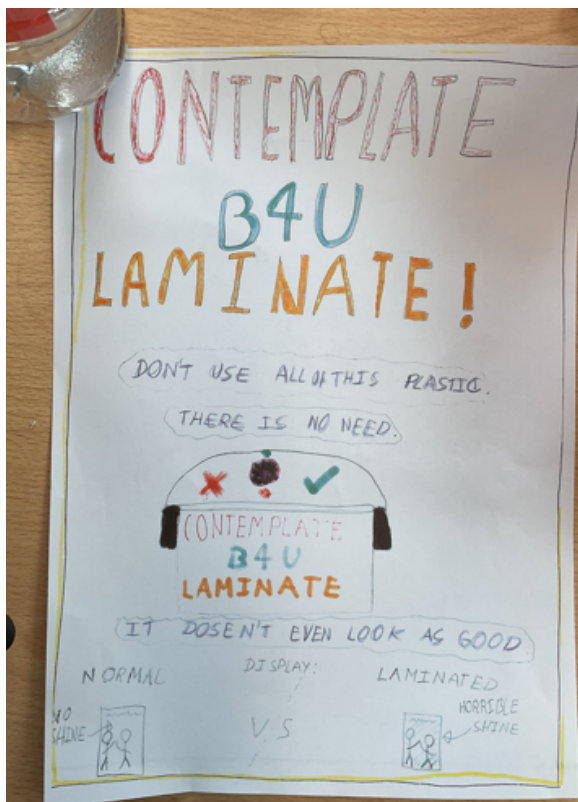 CONTEMPLATE
B4U
LAMINATE!
DON'T USE ALL OF THIS PLASTIC.
THERE IS NO NEED.
CONTEMPLATE
B4U
LAMINATE
IT DOSEN'T EVEN LOOK AS GOOD
DISPLAY:
NORMAL
LAMINATED
NO
SHINE
V.S
HORRIBLE
SHINE